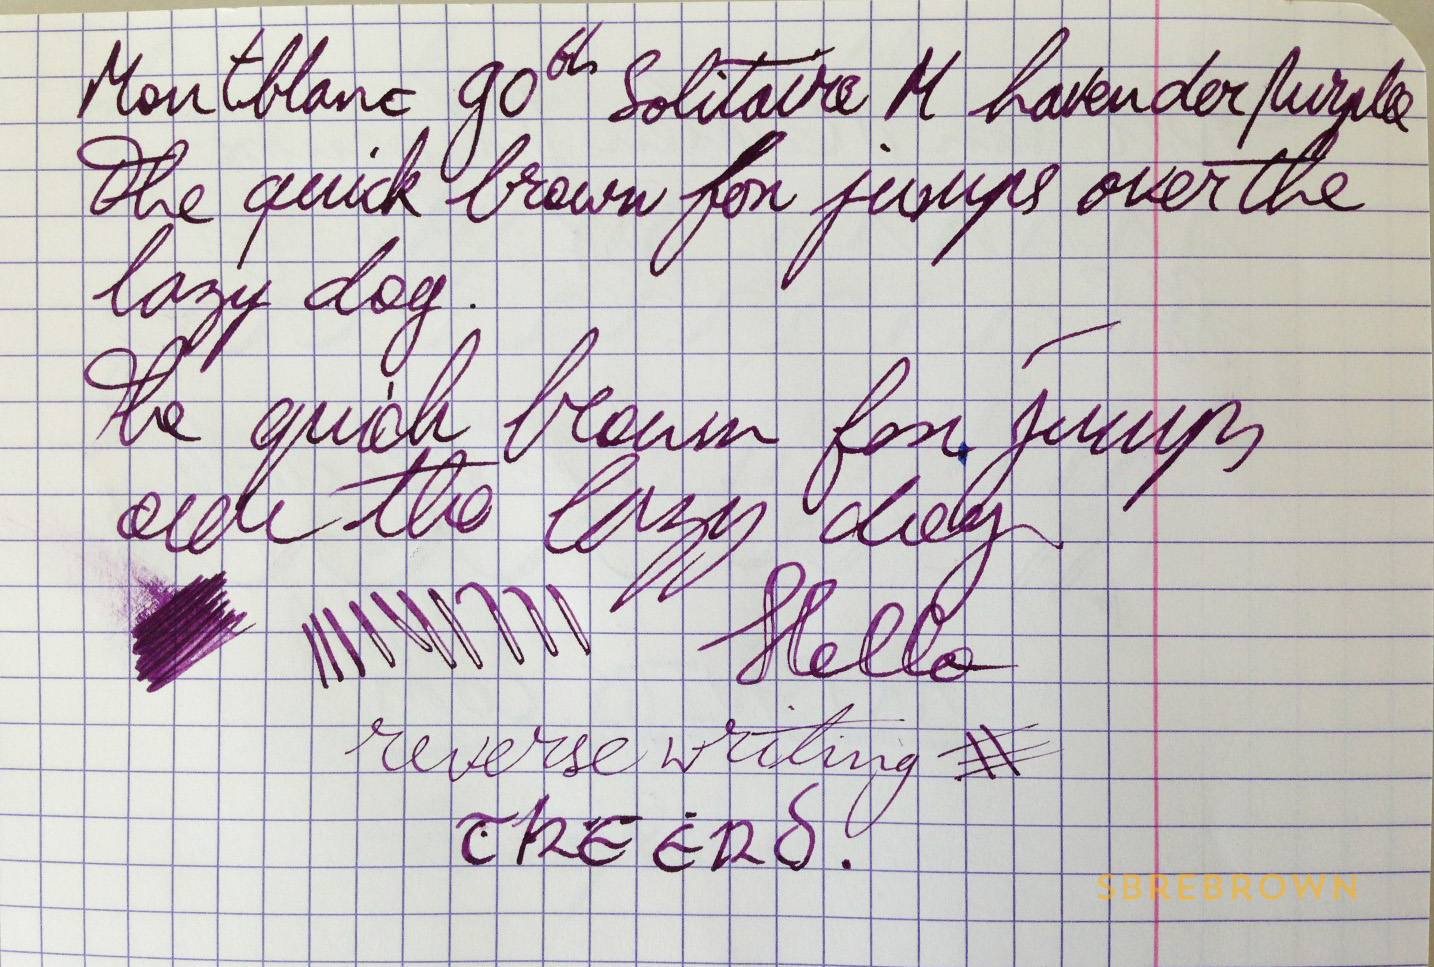 Montblanc 90th Solitaire M Lavender Purple
The quick brown fox jumps over the
lazy dog.
The quick brown fox jumps
over the lazy dog
Hello
reverse writing #
THE END.
SBREBROWN